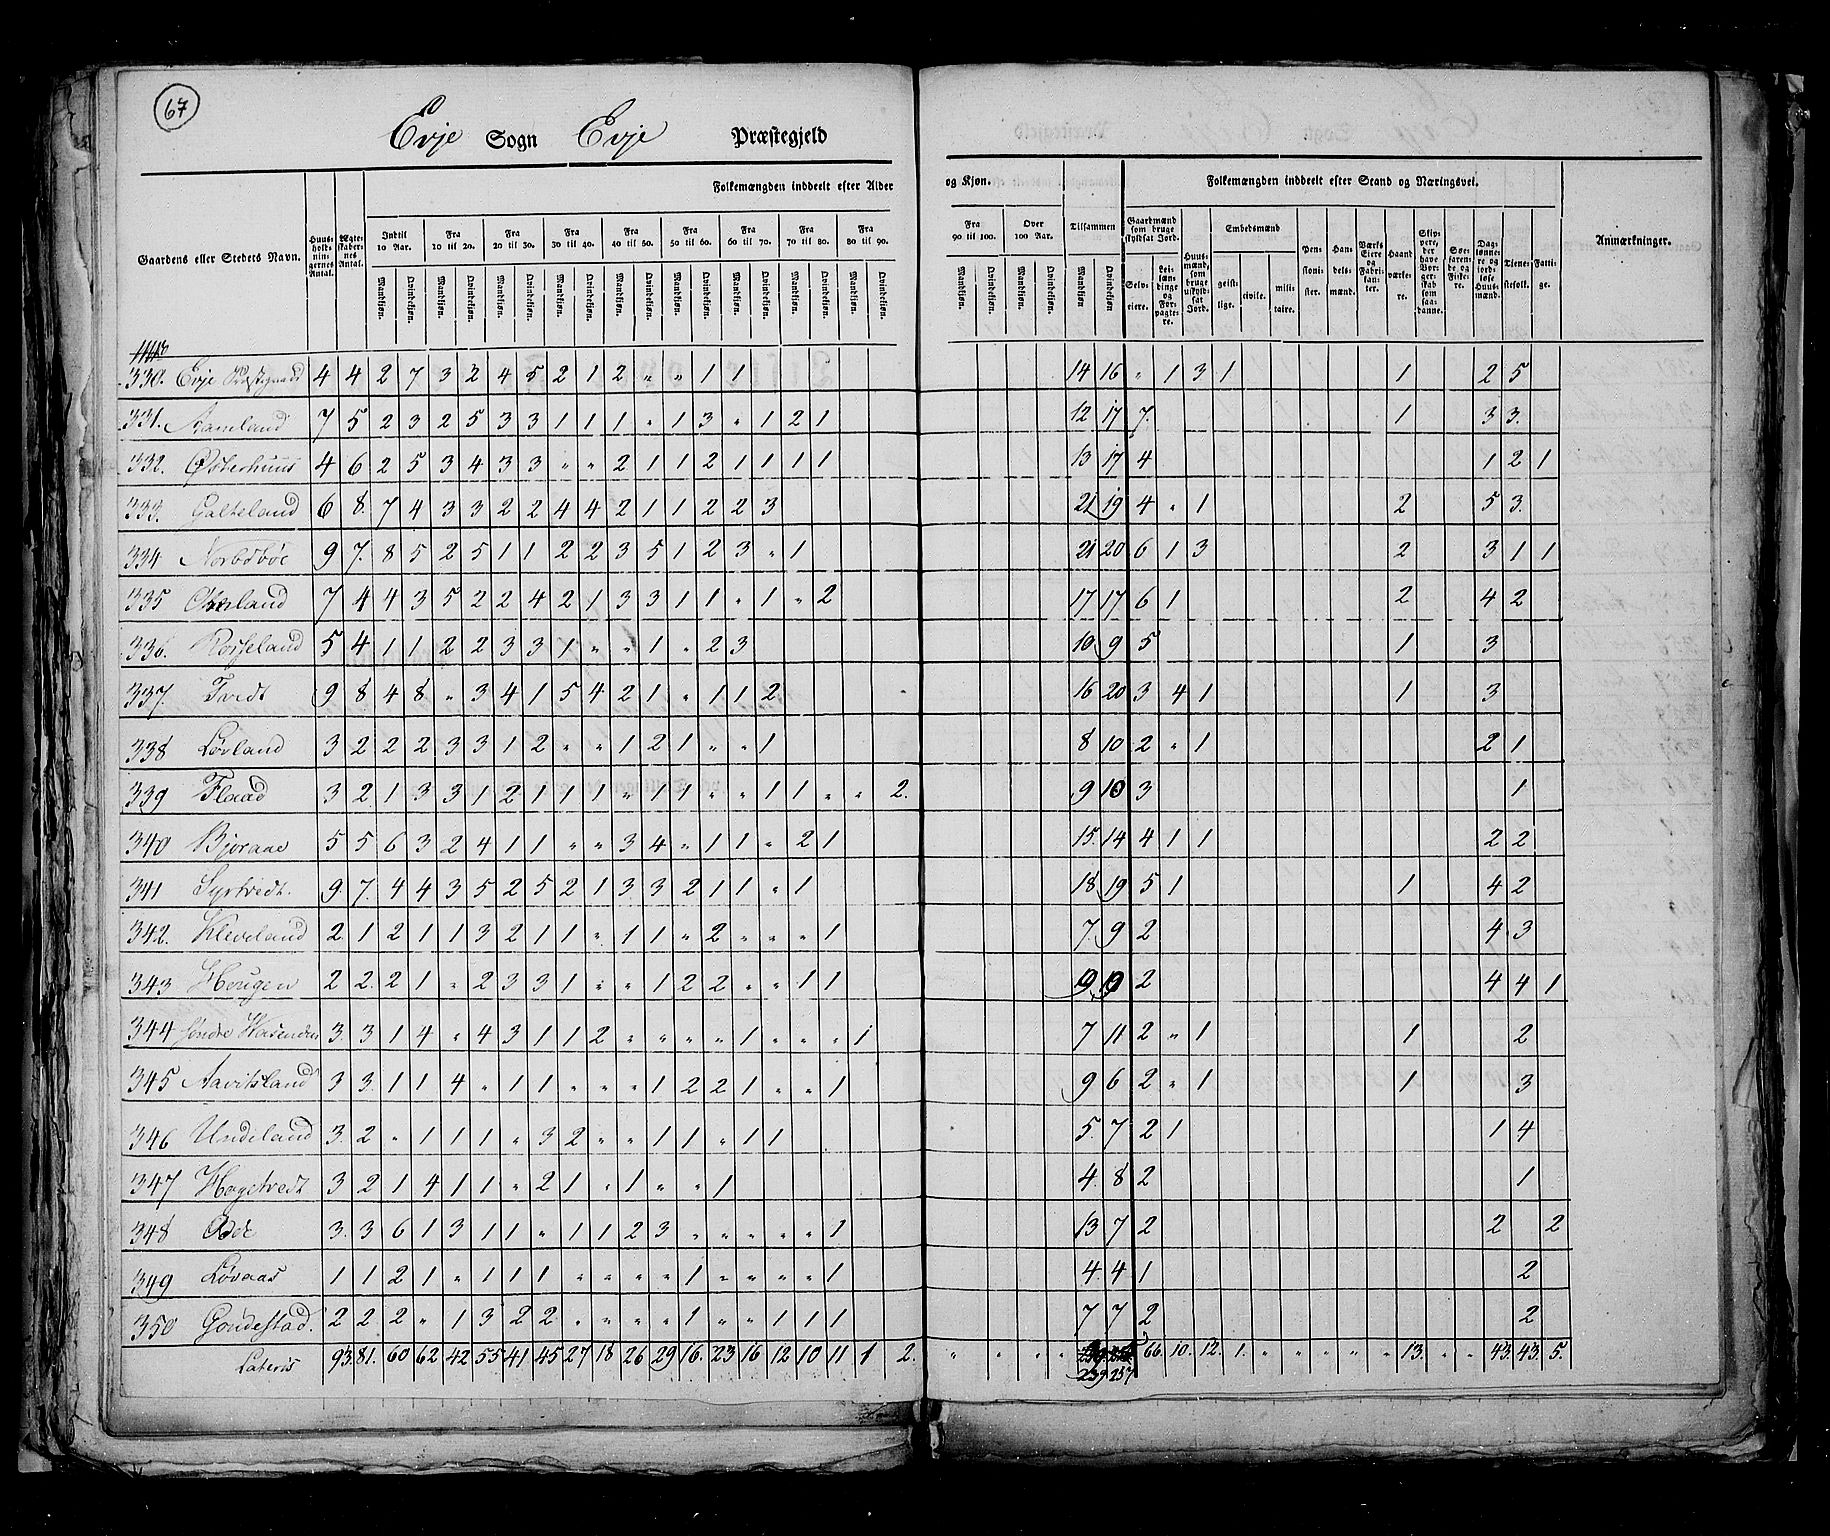 67
Evje Sogn Evje Præstegjeld
Gaardens eller Stedets Navn. Huusholdningernes Antal. Ægteskabernes Antal. Folkemængden inddeelt efter Alder og Kjøn. Folkemængden inddeelt efter Stand og Næringsvei. Anmærkninger.
Indtil 10 Aar. Fra 10 til 20. Fra 20 til 30. Fra 30 til 40. Fra 40 til 50. Fra 50 til 60. Fra 60 til 70. Fra 70 til 80. Fra 80 til 90. Fra 90 til 100. Over 100 Aar. Tilsammen
Mandkjøn. Qvindekjøn. Mandkjøn. Qvindekjøn. Mandkjøn. Qvindekjøn. Mandkjøn. Qvindekjøn. Mandkjøn. Qvindekjøn. Mandkjøn. Qvindekjøn. Mandkjøn. Qvindekjøn. Mandkjøn. Qvindekjøn. Mandkjøn. Qvindekjøn. Mandkjøn. Qvindekjøn. Mandkjøn. Qvindekjøn. Mandkjøn. Qvindekjøn
Gaardmænd som bruge skyldsat Jord. Selveiere. Leilændinge og Forpagtere. Huusmænd, som bruge uskyldsat Jord. Embedsmænd geistlige. civile. militaire. Pensionister. Handelsmænd. Værks Eiere og Fabrikanter. Haandværkere. Skippere, der have Borgerskab som saadanne. Søefarende og Fiskere. Daglønnere og jordløse Huusmænd. Tjenestefolk. Fattige.
330. Evje Præstegaard 4 4 2 7 3 2 4 5 2 1 2 " " 1 1 14 16 " 1 3 1 1 2 5
331. Aamland 7 5 2 3 2 5 3 3 1 1 1 " 1 3 " 1 2 1 12 17 7. 1 3 3.
332. Østerhuus 4 6 2 5 3 4 3 3 " " 2 1 1 2 1 1 1 1 13 17 4 1 2 1
333. Galteland 6 8. 7 4 3 3 2 2 4 4 2 1 1 2 2 3 21 19 4 " 1 2 5 3.
334 9 7. 8 5 2 5 1 1 2 2 3 5 1 2 3 " 1 21 20 6 1 3 2 3 1 1
335 7 4 4 3 5 2 2 4 2 1 3 3 1 1 " 1 " 2 17 17 6 1 2 4 2
336. Rosseland 5 4 1 1 2 2 3 3 1 " " 1 " 2 3 10 9 5 1 3
337. Tvedt 9 8 4 8. " 3 4 1 5 4 2 1 " 1 1 2 16 20 3 4 1 1 3
338 Løvland 3 2 2 2 3 3 1 2 " " 1 2 1 " " 1 8 10 2 " 1 2 1
339 Flaad 3 2 1 3 3 1 2 1 1 1 " 1 1 " " 1 1 " " 2. 9 10 3 1
340 Bjoraae 5 5 6 3 2 4 1 1 " " 3 4 " 1 1 " 2 1 15. 14 4 1 1 2 2
341 Syrtvedt. 9. 7. 4 4 3 5 2 5 2 1 3 3 2 1 1 " 1 18 19 5 1 1 4 2
342. Kleveland 2. 1 2 1 1 3 2 1 1 " 1 1 " 2 " " " 1 7. 9 2 4. 3
343 Hougen 2 2. 2 1 " 2 3 3 1 " " 1 2 2 " " 1 1 9 9 2 4 4 1
344 Søndre 3. 3 1 4 " 4 3 1 1 2 " " " " 1 " " " 1 7 11 2 " 1 1 2
345 Aavitsland 3 3. 1 1 4 " 1 1 " " " 1 2 2 1 " " 1 9 6 2 " 1 1 3
346 Undeland 3. 2 " 1 1 1 " 3 2 " " 1 1 " 1 1 5. 7 2 1 1 4
347 Hogetvedt 3 2 1 4 1 1 " 2 1 " 1 " " 1 4. 8 2 1
348 Odde 3. 3 6 1 3 1 1 " 1 1 2 3 " " " " " 1 13 7 2 2 2
349 Løvaas 1 1 2 1 " 1 1 1 " " " " 1 " " " " 1 4. 4 1 2
350 2 2 2 " 1 3 2 2 " " " " 1 " " 1 1 1 7 7 2 2
Lateris 93. 81. 60 62 42 55 41 45 27 18 26 29 16. 23 16 12 10 11 1 2. " " " " 66 10. 12. 1. " " " " " 13. " " 43. 43. 5.
239 257